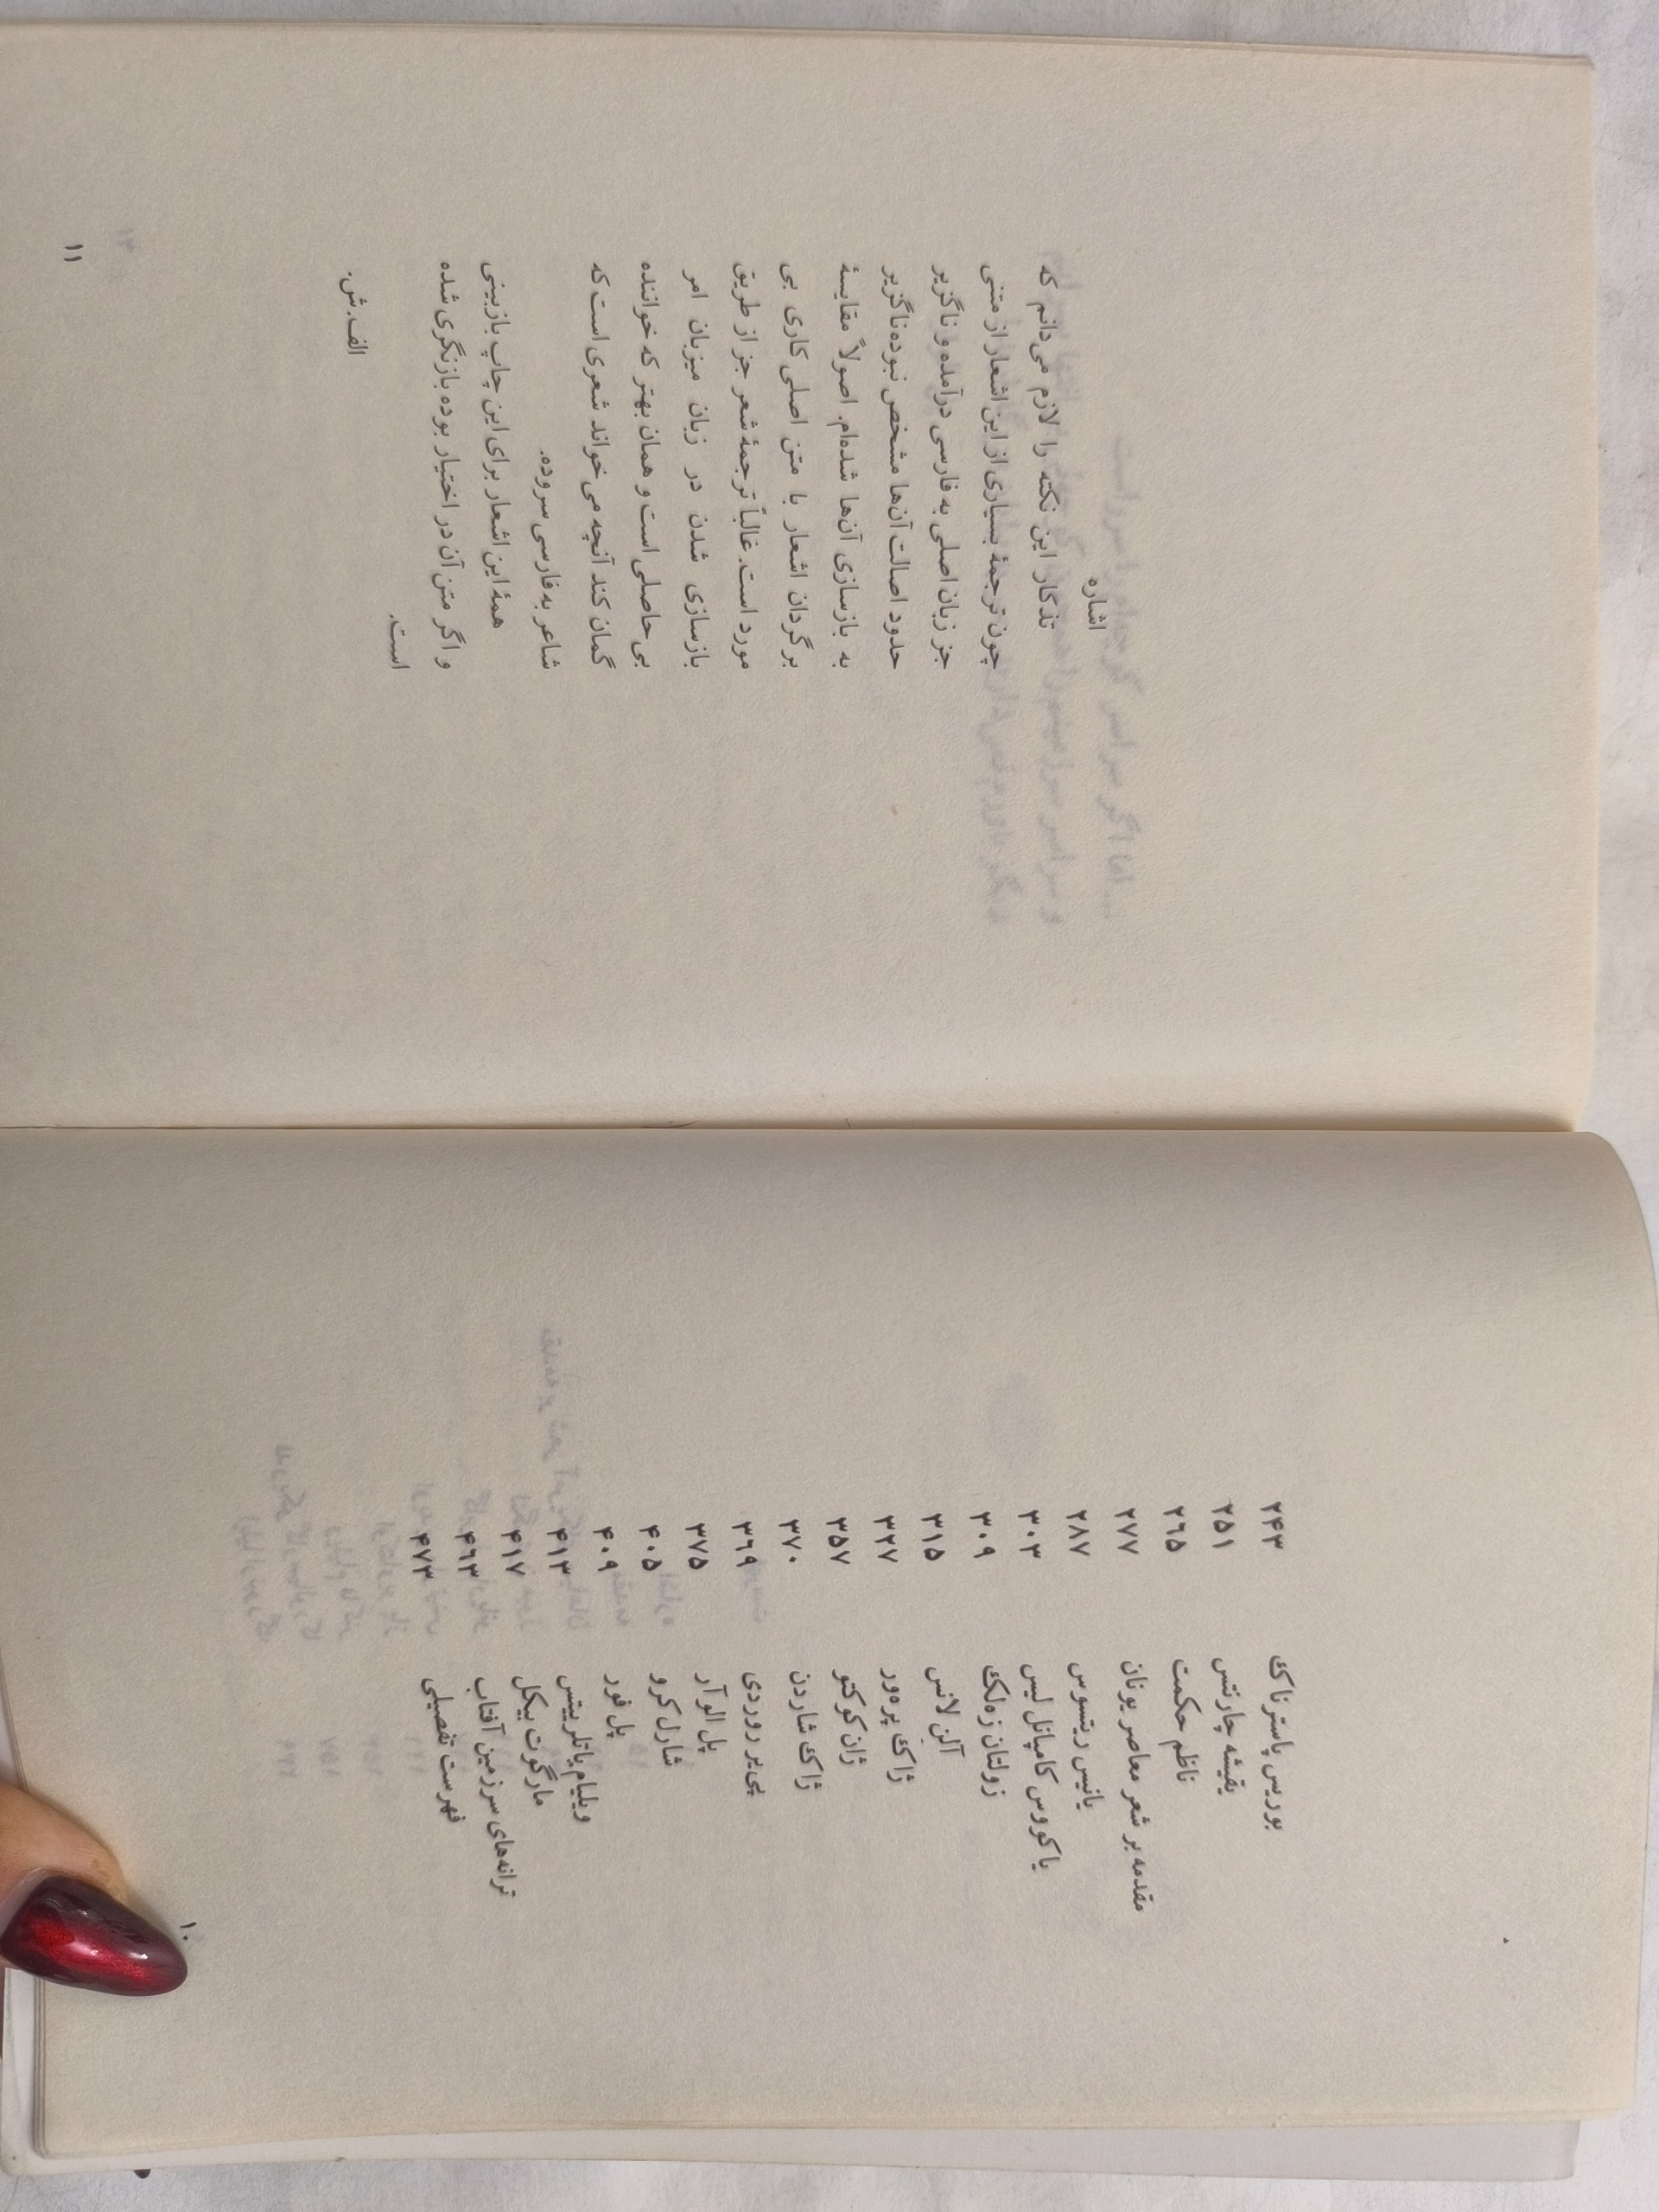 بوریس پاسترناک ۲۴۳
یقیشه چارنتس ۲۵۱
ناظم حکمت ۲۶۵
مقدمه بر شعر معاصر یونان ۲۷۷
یانیس ریتسوس ۲۸۷
یاکووس کامپانل لیس ۳۰۳
زولتان زه‌لک ۳۰۹
آلن لانس ۳۱۵
ژاک پره‌ور ۳۲۷
ژان کوکتو ۳۵۷
ژاک شاردن ۳۷۰
پی‌یر روردی ۳۶۹
پل الوآر ۳۷۵
شارل کرو ۴۰۵
پل فور ۴۰۹
ویلیام باتلر ییتس ۴۱۳
مارگوت بیکل ۴۱۷
ترانه‌های سرزمین آفتاب ۴۶۳
فهرست تفصیلی ۴۷۳
۱۰
اشاره
تذکار این نکته را لازم می‌دانم که
چون ترجمهٔ بسیاری از این اشعار از متنی
جز زبان اصلی به فارسی درآمده و ناگزیر
حدود اصالت آن‌ها مشخص نبوده ناگزیر
به بازسازی آن‌ها شده‌ام. اصولاً مقایسهٔ
برگردان اشعار با متن اصلی کاری بی
مورد است. غالباً ترجمهٔ شعر جز از طریق
بازسازی شدن در زبان میزبان امر
بی‌حاصلی است و همان بهتر که خواننده
گمان کند آنچه می‌خواند شعری است که
شاعر به فارسی سروده.
همهٔ این اشعار برای این چاپ بازبینی
و اگر متن آن در اختیار بوده بازنگری شده
است.
الف. ش.
۱۱